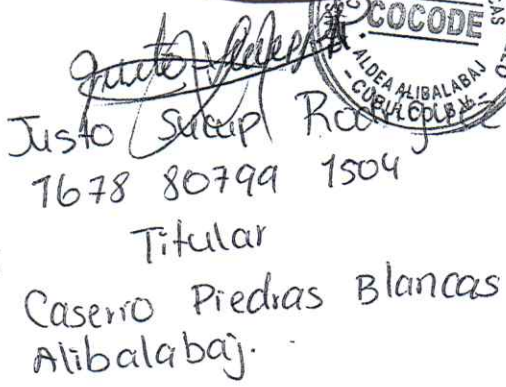 COCODE
ALDEA ALIBALABAJ
Justo Sucup Rodriguez
1678 80799 1504
Titular
Caserio Piedras Blancas
Alibalabaj.